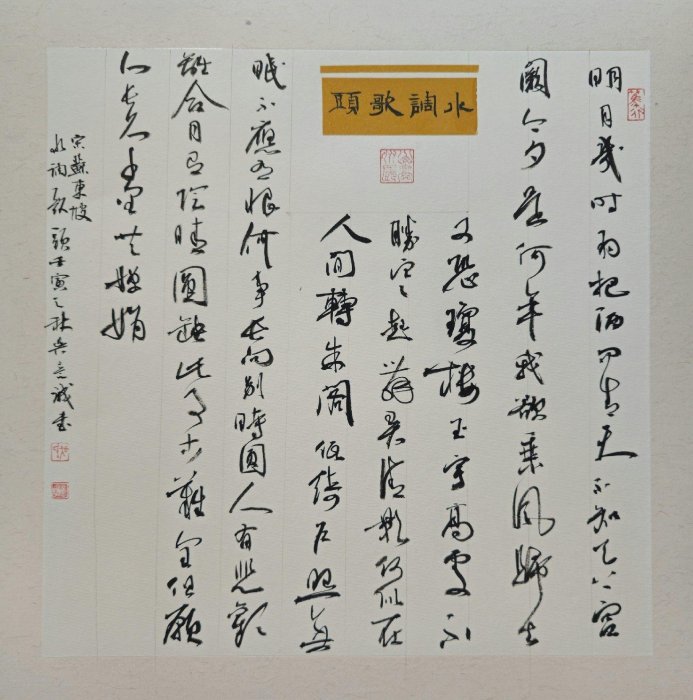 水調歌頭
明月幾時有把酒問青天不知天上宮
闕今夕是何年我欲乘風歸去
又恐瓊樓玉宇高處不
勝寒起舞弄清影何似在
人間轉朱閣低綺戶照無
眠不應有恨何事長向別時圓人有悲歡
離合月有陰晴圓缺此事古難全但願
人長久千里共嬋娟
宋蘇東坡
水調歌頭壬寅之秋吳誠書